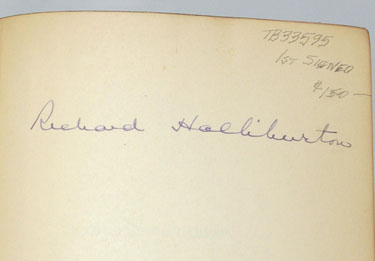 TB33595
1ST SIGNED
$150—
Richard Halliburton